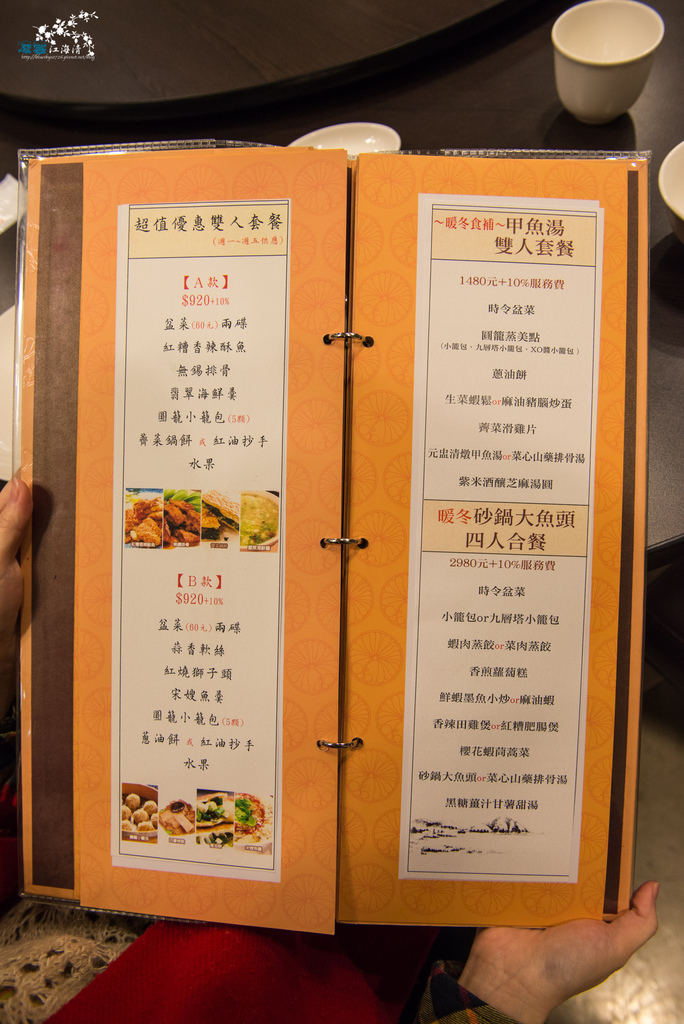 江海清
超值優惠雙人套餐
(週一~週五供應)
【A款】
$920+10%
盆菜(60元)兩碟
紅糟香辣酥魚
無錫排骨
翡翠海鮮羹
圓籠小籠包(5顆)
薺菜鍋餅 或 紅油抄手
水果
【B款】
$920+10%
盆菜(60元)兩碟
蒜香軟絲
紅燒獅子頭
宋嫂魚羹
圓籠小籠包(5顆)
蔥油餅 或 紅油抄手
水果
~暖冬食補~甲魚湯
雙人套餐
1480元+10%服務費
時令盆菜
圓籠蒸美點
(小籠包、九層塔小籠包、XO醬小籠包)
蔥油餅
生菜蝦鬆or麻油豬腦炒蛋
薺菜滑雞片
元盅清燉甲魚湯or菜心山藥排骨湯
紫米酒釀芝麻湯圓
暖冬砂鍋大魚頭
四人合餐
2980元+10%服務費
時令盆菜
小籠包or九層塔小籠包
蝦肉蒸餃or菜肉蒸餃
香煎蘿蔔糕
鮮蝦墨魚小炒or麻油蝦
香辣田雞煲or紅糟肥腸煲
櫻花蝦茼蒿菜
砂鍋大魚頭or菜心山藥排骨湯
黑糖薑汁甘薯甜湯